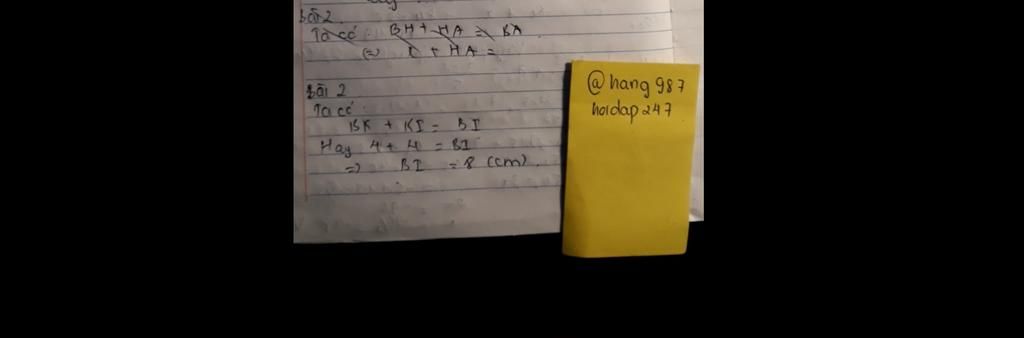 Bài 2
Ta có BH + HA = BA
(=) + HA =
Bài 2
Ta có
BK + KI = BI
Hay 4 + 4 = BI
=> BI = 8 (cm).
@hang987
hoidap247